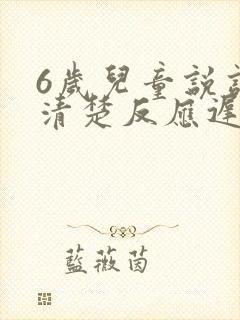 6歲兒童說
清楚反應遲
藍薇茵